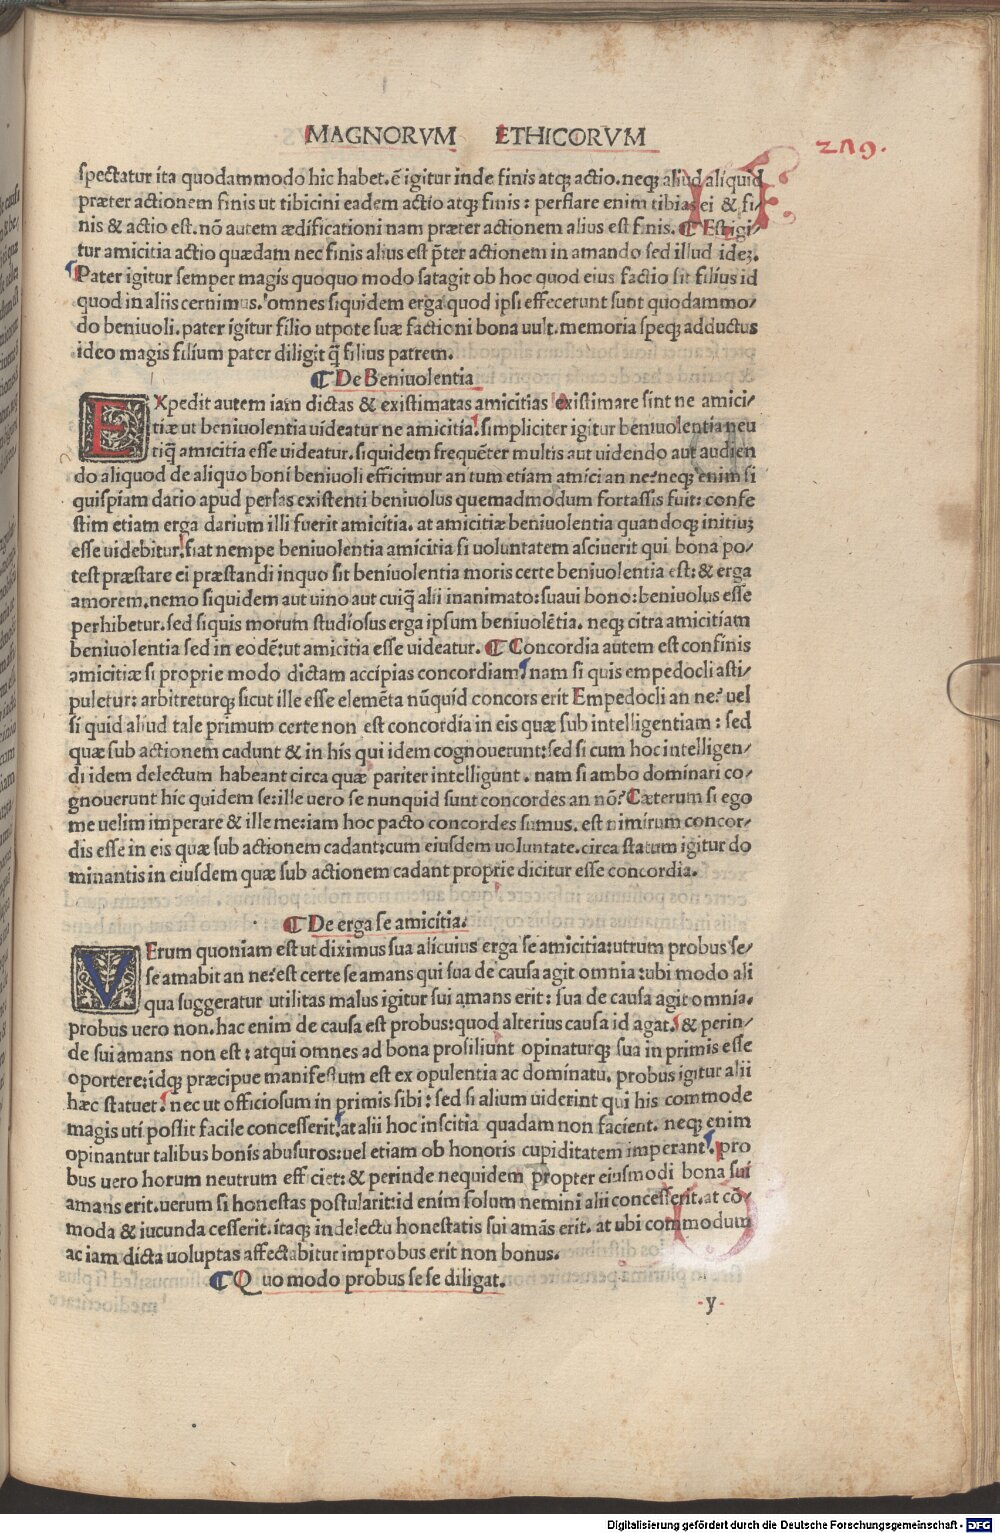 MAGNORVM ETHICORVM
219.
spectatur ita quodammodo hic habet. ē igitur inde finis atqꝫ actio. neqꝫ aliud aliquid
præter actionem finis ut tibicini eadem actio atqꝫ finis: perflare enim tibias ei & fi/
nis & actio est. nō autem ædificationi nam præter actionem alius est finis. ¶ Est igi/
tur amicitia actio quædam nec finis alius est p̄ter actionem in amando sed illud ideꝫ.
Pater igitur semper magis quoquo modo satagit ob hoc quod eius factio sit filius id
quod in aliis cernimus. omnes siquidem erga quod ipsi effecerunt sunt quodammo/
do beniuoli. pater igitur filio utpote suæ factioni bona uult. memoria speqꝫ adductus
ideo magis filium pater diligit q̄ filius patrem.
¶ De Beniuolentia
EXpedit autem iam dictas & existimatas amicitias existimare sint ne amici/
tiæ ut beniuolentia uideatur ne amicitia. simpliciter igitur beniuolentia neu
tiq̄ amicitia esse uideatur. siquidem frequēter multis aut uidendo aut audien
do aliquod de aliquo boni beniuoli efficimur an tum etiam amici an ne? neqꝫ enim si
quispiam dario apud persas existenti beniuolus quemadmodum fortassis fuit: confe
stim etiam erga darium illi fuerit amicitia. at amicitiæ beniuolentia quandoqꝫ initiuꝫ
esse uidebitur. fiat nempe beniuolentia amicitia si uoluntatem asciuerit qui bona po/
test præstare ei præstandi inquo sit beniuolentia moris certe beniuolentia est: & erga
amorem. nemo siquidem aut uino aut cuiq̄ alii inanimato: suaui bono: beniuolus esse
perhibetur. sed siquis morum studiosus erga ipsum beniuolētia. neqꝫ citra amicitiam
beniuolentia sed in eodē: ut amicitia esse uideatur. ¶ Concordia autem est confinis
amicitiæ si proprie modo dictam accipias concordiam. nam si quis empedocli asti/
puletur: arbitreturqꝫ sicut ille esse elemēta nūquid concors erit Empedocli an ne? uel
si quid aliud tale primum certe non est concordia in eis quæ sub intelligentiam: sed
quæ sub actionem cadunt & in his qui idem cognouerunt: sed si cum hoc intelligen/
di idem delectum habeant circa quæ pariter intelligunt. nam si ambo dominari co/
gnouerunt hic quidem se: ille uero se nunquid sunt concordes an nō? Cæterum si ego
me uelim imperare & ille me: iam hoc pacto concordes sumus. est nimirum concor/
dis esse in eis quæ sub actionem cadant: cum eiusdem uoluntate. circa statum igitur do
minantis in eiusdem quæ sub actionem cadant proprie dicitur esse concordia.
¶ De erga se amicitia.
VErum quoniam est ut diximus sua alicuius erga se amicitia: utrum probus se/
se amabit an ne? est certe se amans qui sua de causa agit omnia: ubi modo ali
qua suggeratur utilitas malus igitur sui amans erit: sua de causa agit omnia.
probus uero non. hac enim de causa est probus: quod alterius causa id agat. & perin/
de sui amans non est: atqui omnes ad bona prosiliunt opinaturqꝫ sua in primis esse
oportere: idqꝫ præcipue manifestum est ex opulentia ac dominatu. probus igitur alii
hæc statuet. nec ut officiosum in primis sibi: sed si alium uiderint qui his commode
magis uti possit facile concesserit. at alii hoc inscitia quadam non facient. neqꝫ enim
opinantur talibus bonis abusuros: uel etiam ob honoris cupiditatem imperant. pro
bus uero horum neutrum efficiet: & perinde nequidem propter eiusmodi bona sui
amans erit. uerum si honestas postularit: id enim solum nemini alii concesserit. at cō/
moda & iucunda cesserit. itaqꝫ in delectu honestatis sui amās erit. at ubi commodum
ac iam dicta uoluptas affectabitur improbus erit non bonus.
¶ Quo modo probus sese diligat.
y
Digitalisierung gefördert durch die Deutsche Forschungsgemeinschaft - DFG